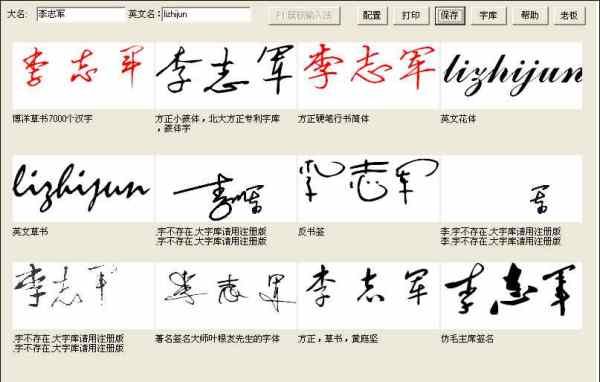 大名: 李志军 英文名: lizhijun F1 鼠标输入法 配置 打印 保存 字库 帮助 老板
李志军 李志军 李志军 lizhijun
博洋草书7000个汉字 方正小篆体，北大方正专利字库 方正硬笔行书简体 英文花体
，篆体字
lizhijun 李志军 李志军 军
英文草书 .字不存在,大字库请用注册版 反书签 李.字不存在,大字库请用注册版
.字不存在,大字库请用注册版 李.字不存在,大字库请用注册版
李志军 李志军 李志军 李志军
.字不存在,大字库请用注册版 著名签名大师叶根友先生的字体 方正，草书，黄庭坚 仿毛主席签名
.字不存在,大字库请用注册版